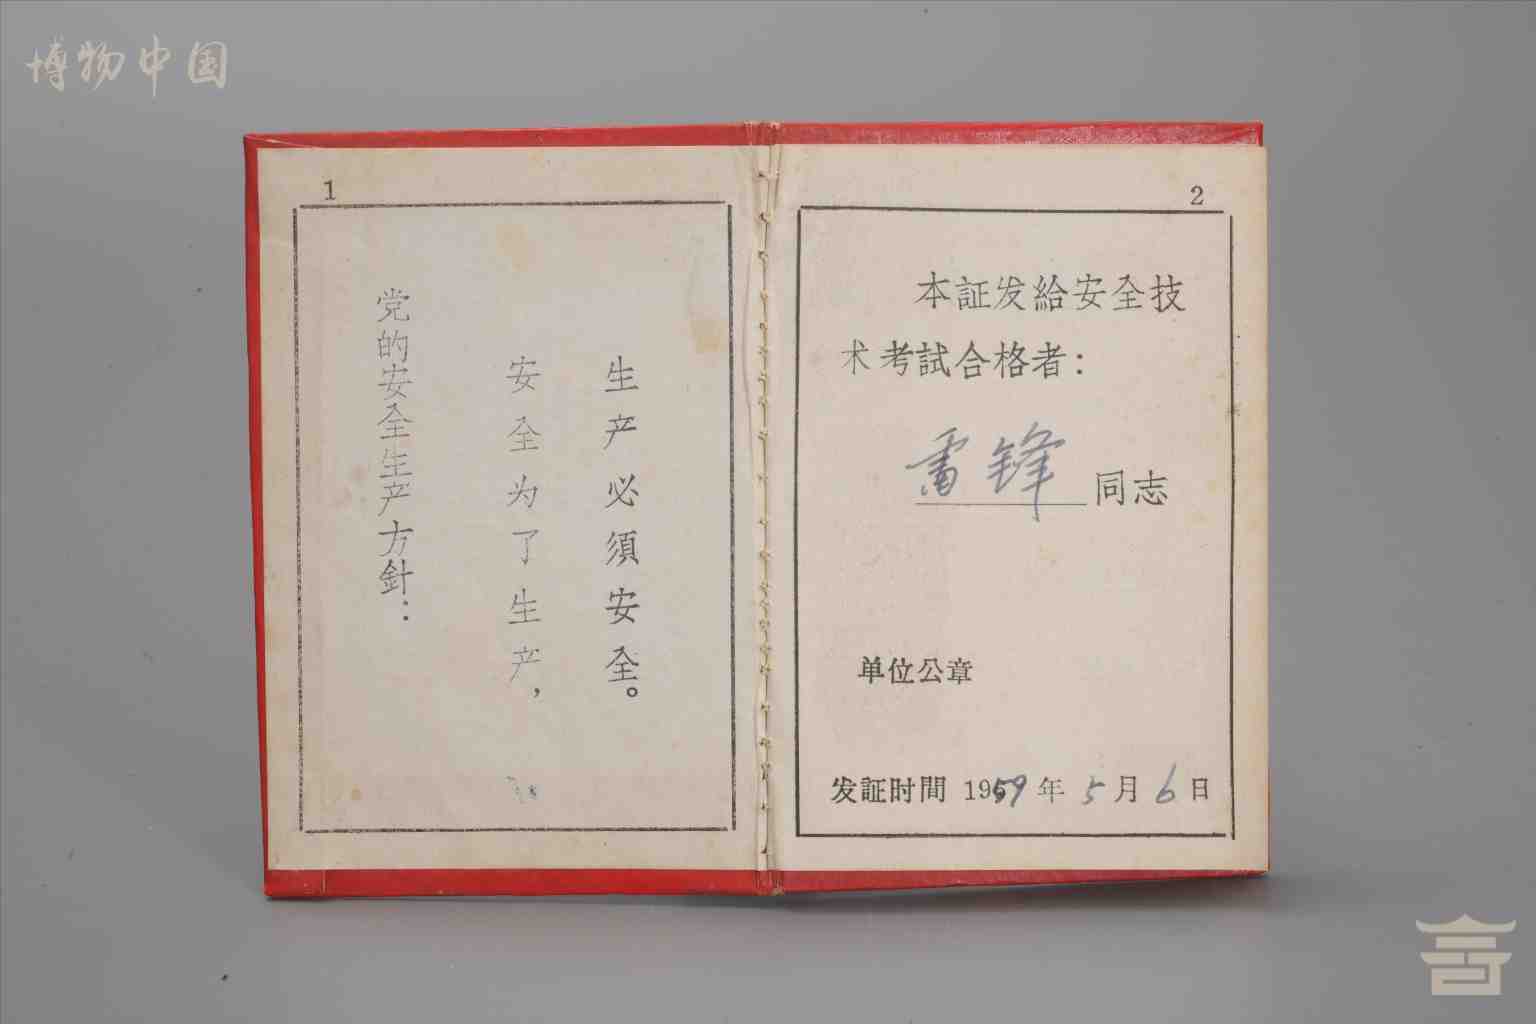 博物中国
1
党的安全生产方針：
安全为了生产，
生产必須安全。
2
本証发給安全技
术考試合格者：
雷锋同志
单位公章
发証时間 1959年5月6日